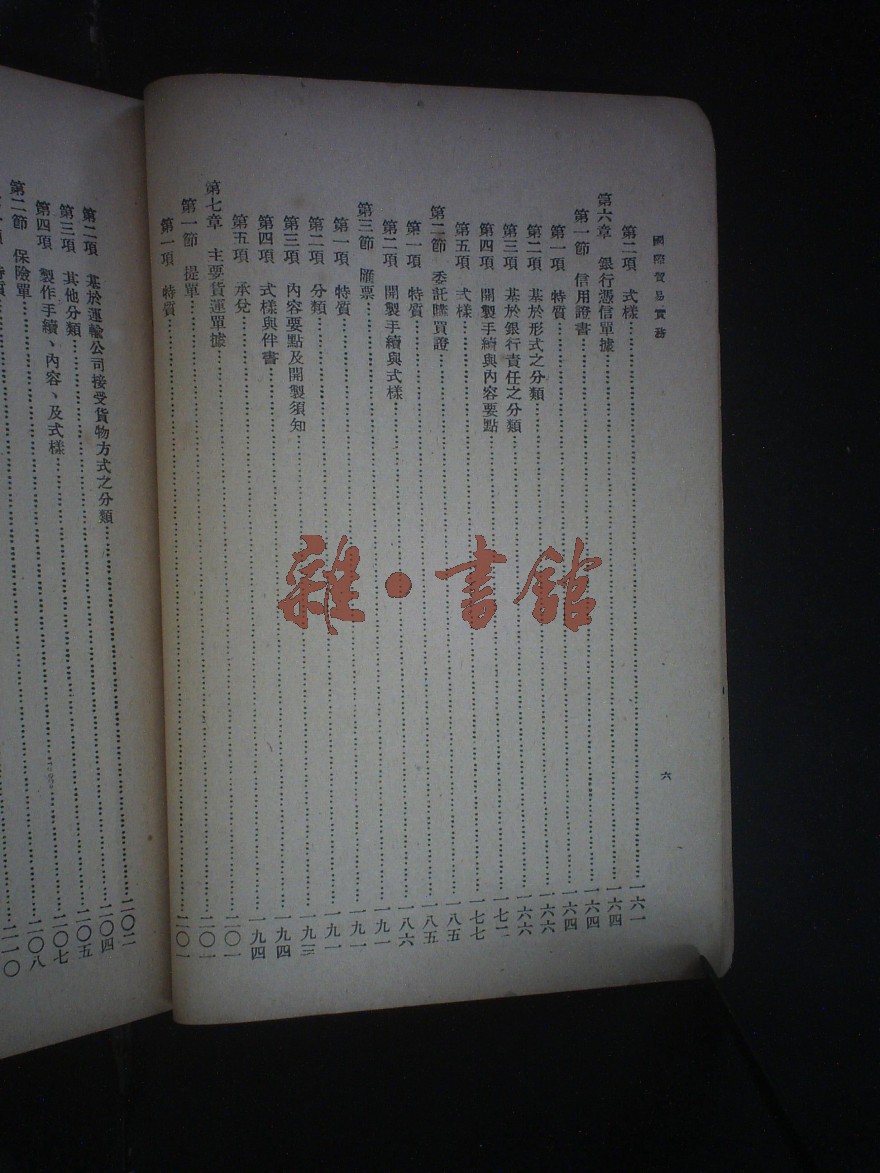 國際貿易實務 六
第二項 式樣……一六一
第六章 銀行憑信單據……一六四
第一節 信用證書……一六四
第一項 特質……一六四
第二項 基於形式之分類……一六六
第三項 基於銀行責任之分類……一六六
第四項 開製手續與內容要點……一七二
第五項 式樣……一七七
第二節 委託購買證……一八五
第一項 特質……一八五
第二項 開製手續與式樣……一八六
第三節 匯票……一九一
第一項 特質……一九一
第二項 分類……一九一
第三項 內容要點及開製須知……一九三
第四項 式樣與伴書……一九四
第五項 承兌……一九四
第七章 主要貨運單據……二〇一
第一節 提單……二〇一
第一項 特質……二〇一
第二項 基於運輸公司接受貨物方式之分類……二〇二
第三項 其他分類……二〇四
第四項 製作手續、內容、及式樣……二〇五
第二節 保險單……二〇七
第一項 特質……二〇八
二一〇
雜·書館